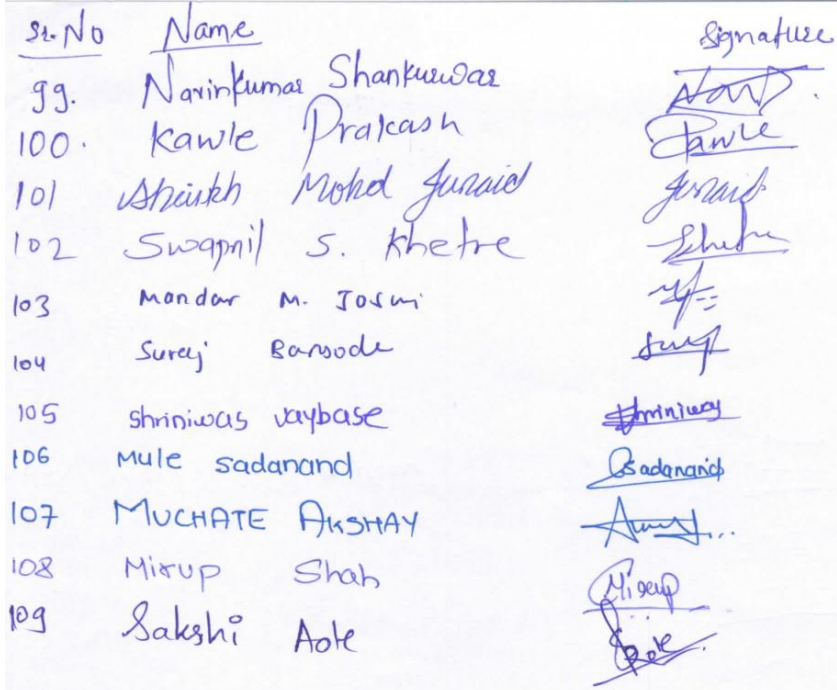 Sr. No Name Signature
99. Navinkumar Shankurwar Nav
100. Kawle Prakash Pawle
101 Sheikh Mohd Junaid Junaid
102 Swapnil S. Khetre Khetre
103 Mandar M. Joshi
104 Suraj Bansode Suraj
105 shriniwas vaybase Shriniwas
106 Mule sadanand Sadanand
107 MUCHATE AKSHAY
108 Mirup Shah Mirup
109 Sakshi Aote Aote